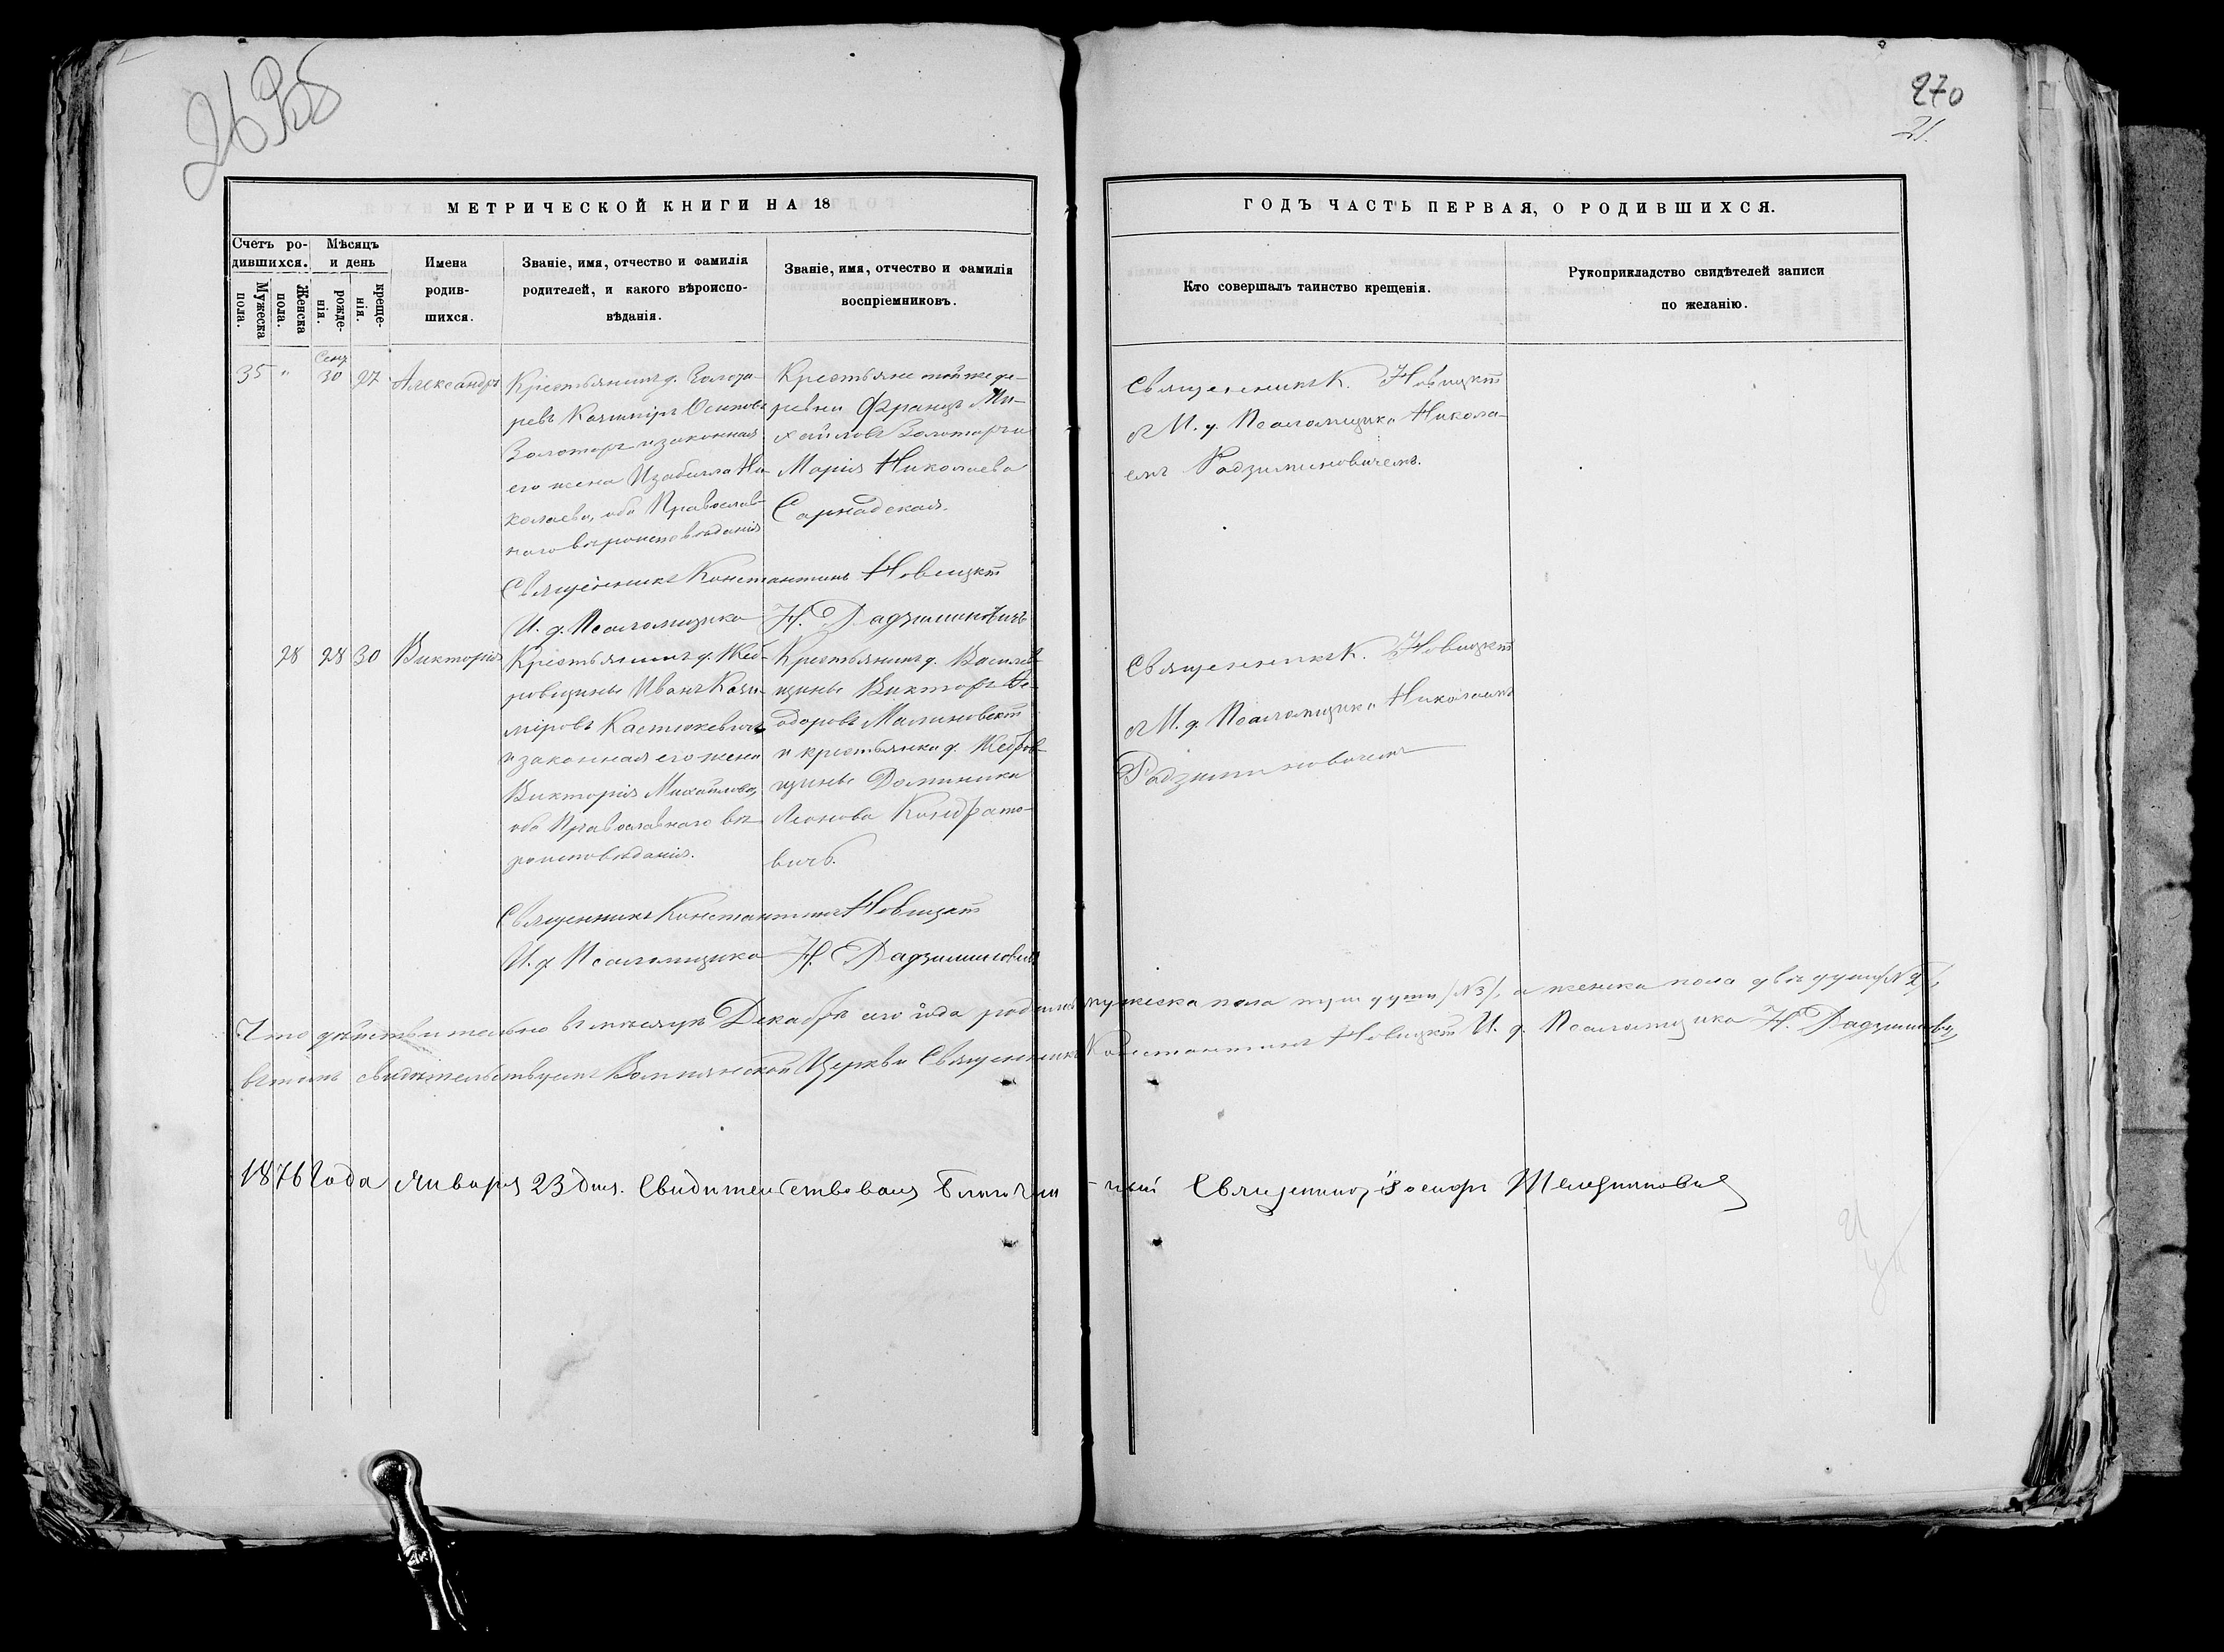 270
21.
МЕТРИЧЕСКОЙ КНИГИ НА 18
ГОДЪ ЧАСТЬ ПЕРВАЯ, О РОДИВШИХСЯ.
Счетъ ро-
дившихся.
Мужеска
пола.
Женска
пола.
Мѣсяцъ
и день
рожде-
нія.
креще-
нія.
Имена
родив-
шихся.
Званіе, имя, отчество и фамилія
родителей, и какого вѣроиспо-
вѣданія.
Званіе, имя, отчество и фамилія
воспріемниковъ.
Кто совершалъ таинство крещенія.
Рукоприкладство свидѣтелей записи
по желанію.
35 " 30 27
Александръ
Крестьянинъ д.
ревъ Казиміръ Осиповъ
Золотарь и законная
его жена Изабелла Ни-
колаева, оба Православ-
наго вѣроисповѣданія
Крестьяне той же де-
ревни Францъ Ми-
хайловъ Золотарь и
Марія Николаева
Священникъ К. Новицкій
съ И. д. Псаломщика Никола-
емъ Радзиминовичемъ.
Священникъ Константинъ Новицкій
И. д. Псаломщика Н. Радзиминовичъ
28 28 30
Викторія
Крестьянинъ д. Жеб-
ровщины Иванъ Кази-
міровъ Касткевичъ
и законная его жена
Викторія Михайлова,
оба Православнаго вѣ-
роисповѣданія.
Крестьянинъ д. Василев-
щины Викторъ Ѳе-
одоровъ Малиновскій
и крестьянка д. Жебров-
щины Доминика
Леонова Кондрато-
вичъ.
Священникъ К. Новицкій
съ И. д. Псаломщика Николаемъ
Радзиминовичемъ
Священникъ Константинъ Новицкій
И. д. Псаломщика Н. Радзиминовичъ
Что дѣйствительно въ мѣсяцѣ Декабрѣ сего года родилось мужеска пола три души /№ 3/, а женска пола двѣ души /№ 2/,
въ томъ свидѣтельствуемъ Церкви Священникъ Константинъ Новицкій И. д. Псаломщика Н. Радзиминовичъ
1876 года Января 23 дня. Свидѣтельствовалъ Благочин-
ный Священникъ Іосифъ